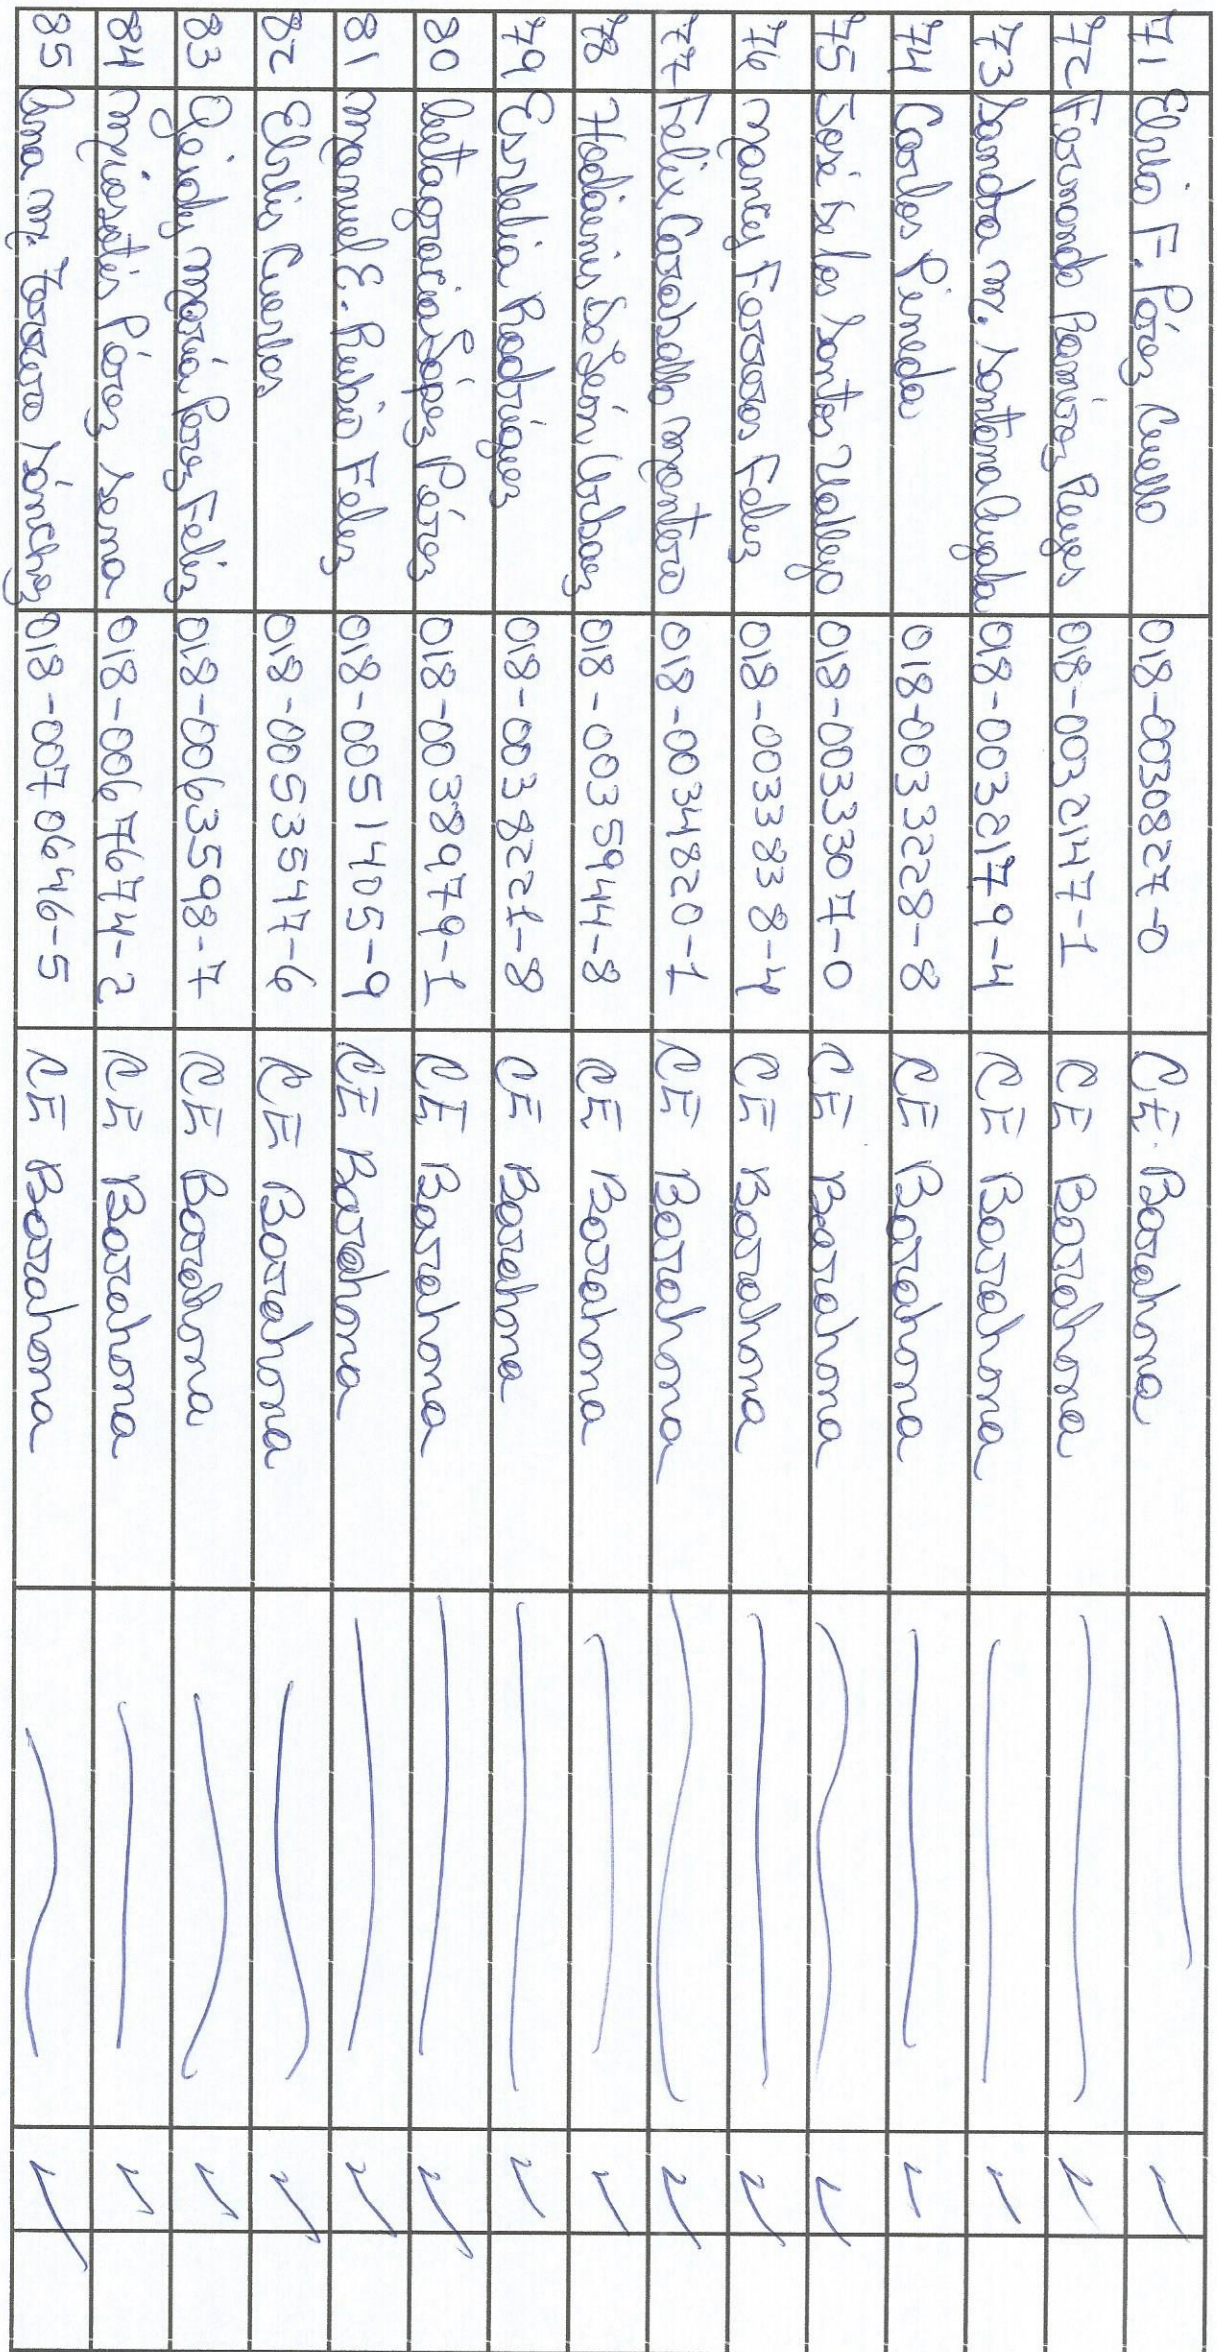 71 Elvio F. Pérez Cuello 018-0030827-0 CE. Barahona
72 Fernando Ramírez Reyes 018-0032147-1 CE Barahona
73 Sandra M. Santana 018-0032179-4 CE Barahona
74 Carlos Pineda 018-0033228-8 CE Barahona
75 José De los Santos Vallejo 018-0033307-0 CE Barahona
76 Feliz 018-0033838-4 CE Barahona
77 Felix Caraballo Montero 018-0034820-1 CE Barahona
78 De León Urbaez 018-0035944-8 CE Barahona
79 Rodríguez 018-0038221-8 CE Barahona
80 Altagracia López Pérez 018-0038979-1 CE Barahona
81 Manuel E. Rubio Feliz 018-0051405-9 CE Barahona
82 Cuevas 018-0053547-6 CE Barahona
83 María Perez Feliz 018-0063598-7 CE Barahona
84 Pérez 018-0067674-2 CE Barahona
85 Ana M. Sánchez 018-0070646-5 CE Barahona